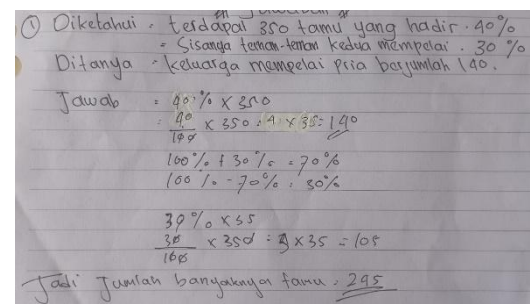 ① Diketahui = terdapat 350 tamu yang hadir. 40%
= Sisanya teman-teman kedua mempelai. 30%
Ditanya = keluarga mempelai pria berjumlah 140.
Jawab = 40% x 350
= 40/100 x 350 = 4 x 35 = 140
100% + 30% = 70%
100% - 70% = 30%
30% x 35
30/100 x 350 = 3 x 35 = 105
Jadi Jumlah banyaknya tamu = 295